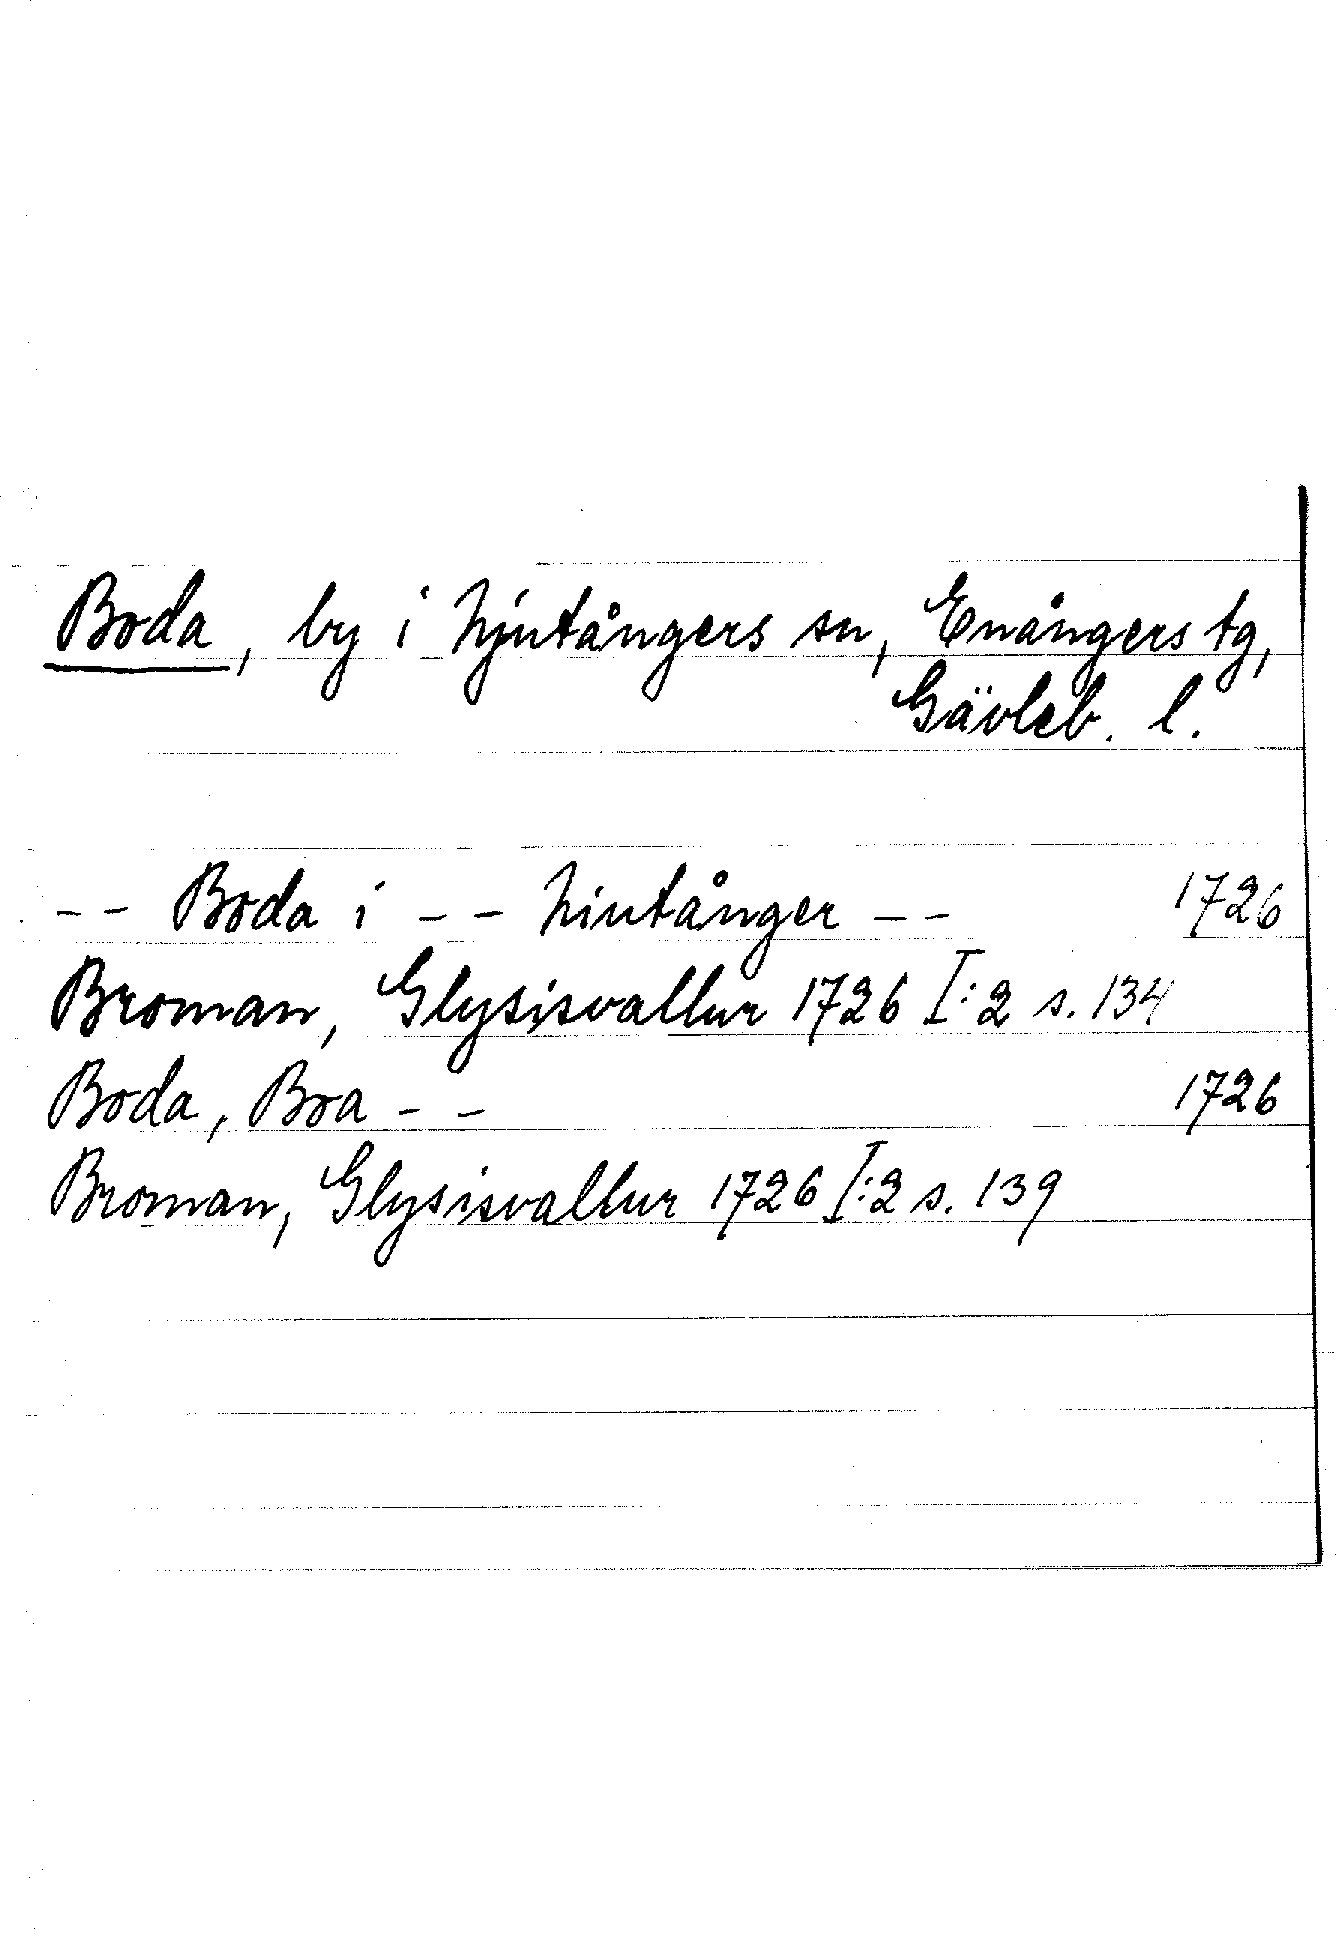 Boda, by i Njutångers sn, Enångers tg,
Gävleb. l.
-- Boda i -- Niutånger -- 1726
Broman, Glysisvallur 1726 I:2 s. 134
Boda, Boa -- 1726
Broman, Glysisvallur 1726 I:2 s. 139